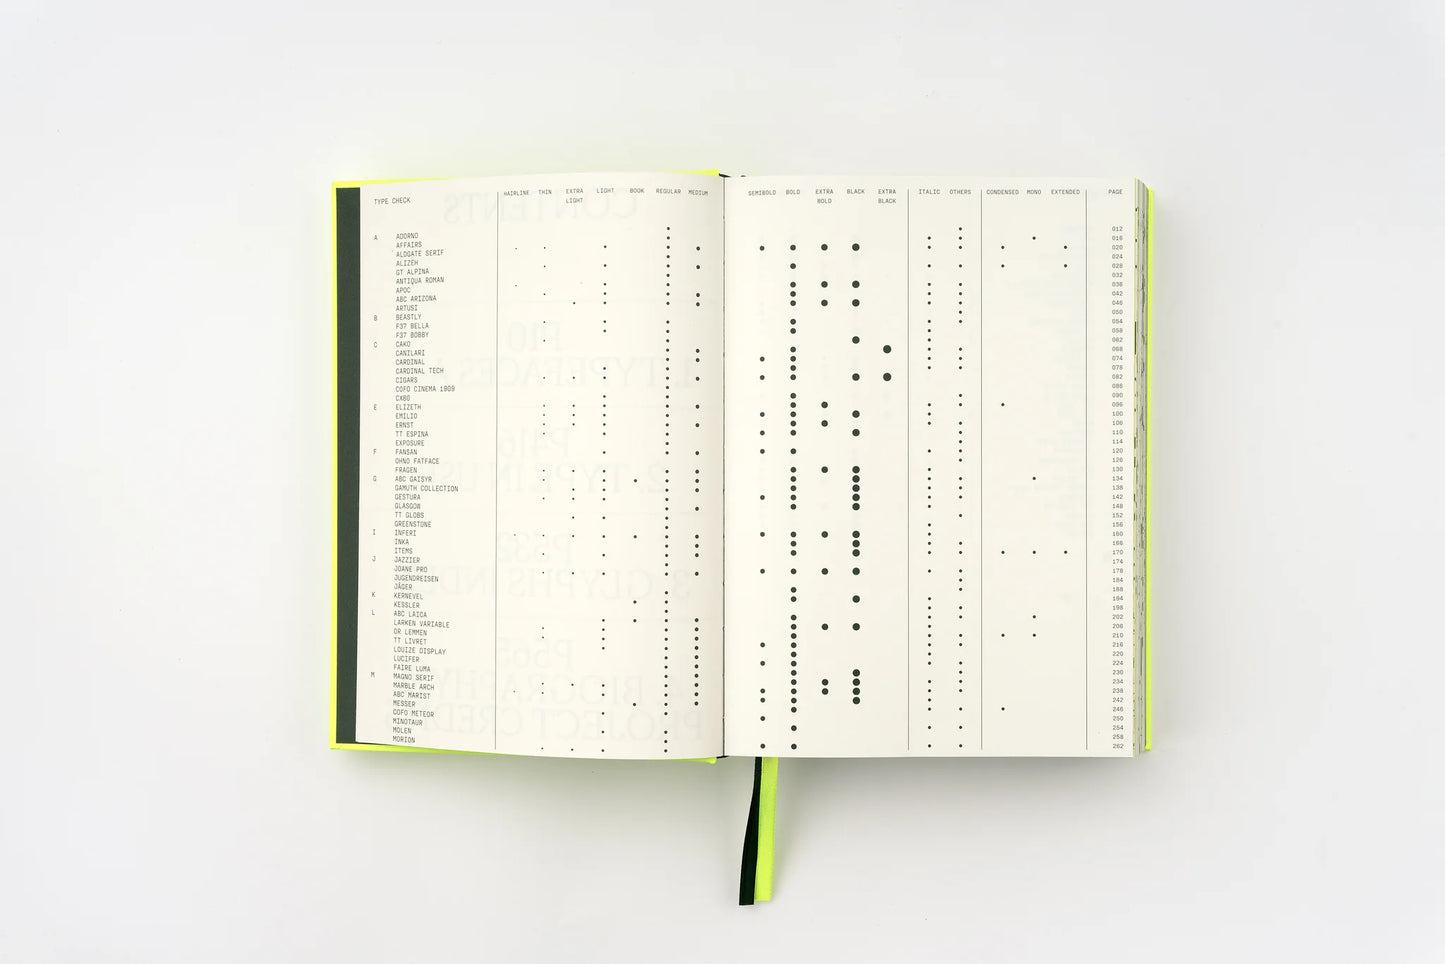 HAIRLINE THIN EXTRA LIGHT LIGHT BOOK REGULAR MEDIUM
TYPE CHECK
A ADORNO
AFFAIRS
ALDGATE SERIF
ALIZEH
GT ALPINA
ANTIQUA ROMAN
APOC
ABC ARIZONA
ARTUSI
B BEASTLY
F37 BELLA
F37 BOBBY
C CAKO
CANILARI
CARDINAL
CARDINAL TECH
CIGARS
COFO CINEMA 1909
CX80
E ELIZETH
EMILIO
ERNST
TT ESPINA
EXPOSURE
F FANSAN
OHNO FATFACE
FRAGEN
G ABC GAISYR
GAMUTH COLLECTION
GESTURA
GLASGOW
TT GLOBS
GREENSTONE
I INFERI
INKA
ITEMS
J JAZZIER
JOANE PRO
JUGENDREISEN
JÄGER
K KERNEVEL
KESSLER
L ABC LAICA
LARKEN VARIABLE
DR LEMMEN
TT LIVRET
LOUIZE DISPLAY
LUCIFER
FAIRE LUMA
M MAGNO SERIF
MARBLE ARCH
ABC MARIST
MESSER
COFO METEOR
MINOTAUR
MOLEN
MORION
SEMIBOLD BOLD EXTRA BOLD BLACK EXTRA BLACK ITALIC OTHERS CONDENSED MONO EXTENDED PAGE
012
016
020
024
028
032
036
042
046
050
054
058
062
068
074
078
082
086
090
096
100
106
110
114
120
126
130
134
138
142
148
152
156
160
166
170
174
178
184
188
194
198
202
206
210
216
220
224
230
234
238
242
246
250
254
258
262